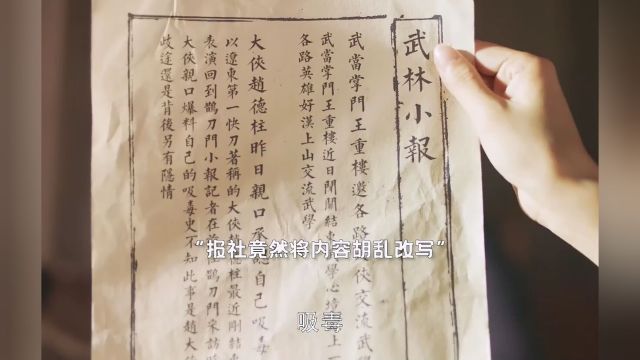 武林小報
武當掌門王重樓邀各路俠交流武
武當掌門王重樓近日閉關結束學心境上一
各路英雄好漢上山交流武學
大俠趙德柱昨日親口承自己吸毒
以遼東第一快刀著稱的大俠柱最近剛結束
表演回到鵲刀門小報記者在鵲刀門來訪時
大俠親口爆料自己的吸毒史不知此事是趙大俠
歧途還是背後另有隱情
“报社竟然将内容胡乱改写”
吸毒